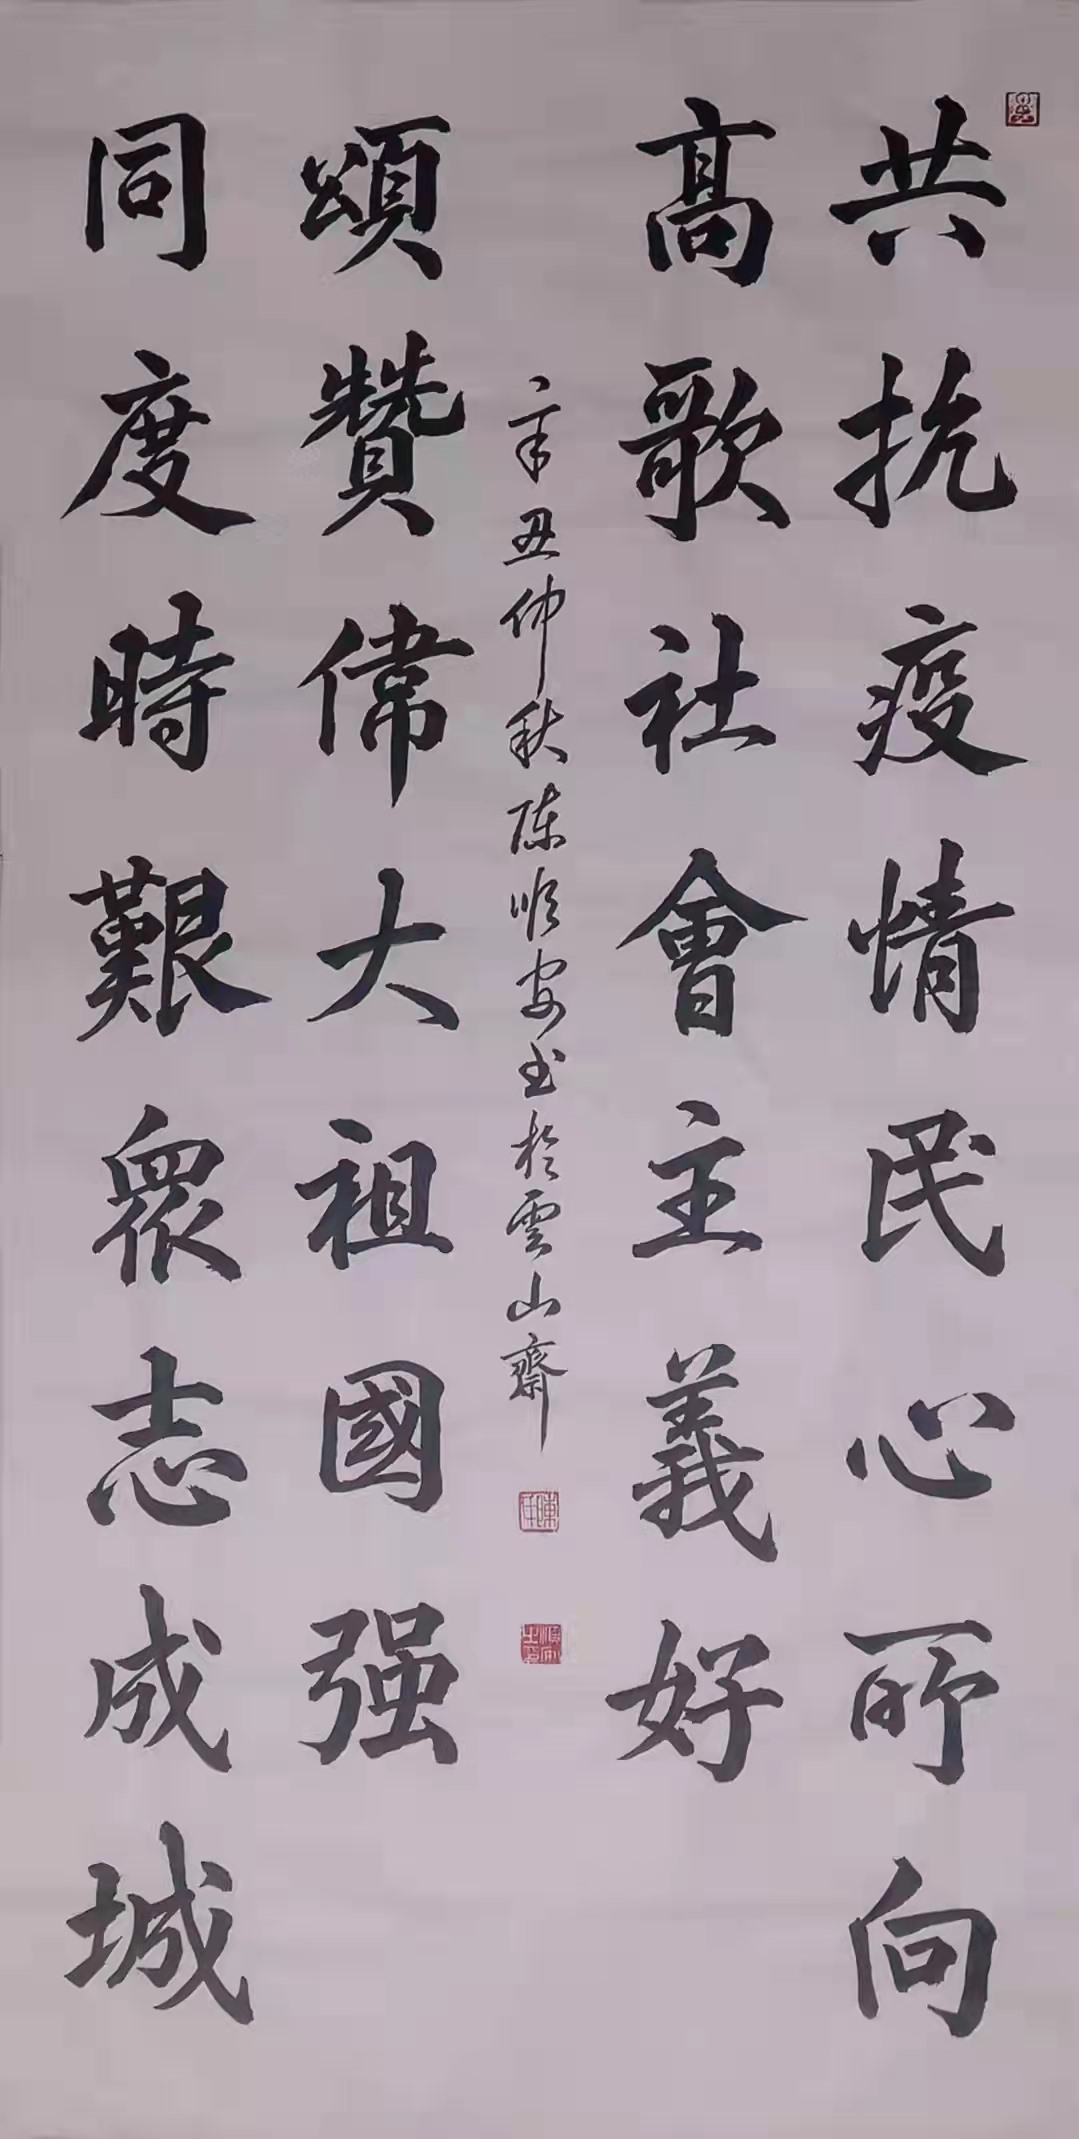 共抗疫情民心所向
高歌社會主義好
同度時艱眾志成城
頌贊偉大祖國强
辛丑仲秋陈顺安书於雲山齋